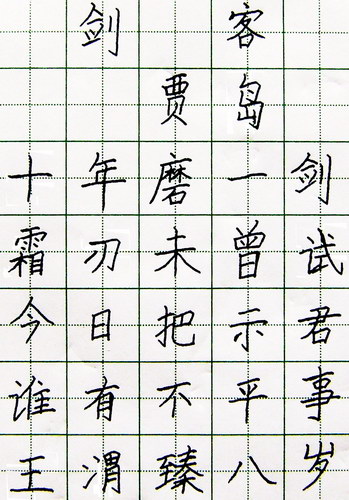 剑 客
贾 岛
十年磨一剑
霜刃未曾试
今日把示君
谁有不平事
王渭臻八岁